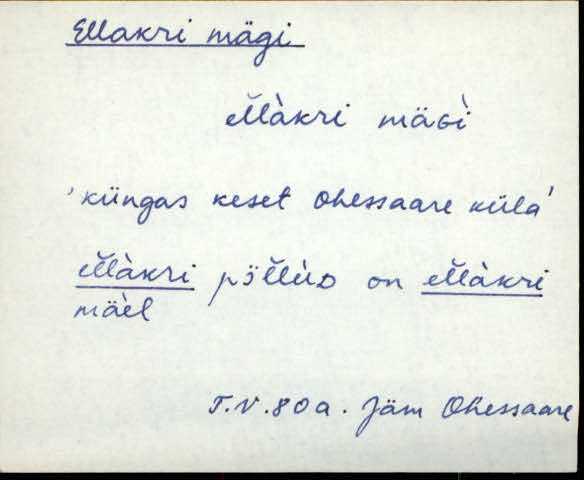 Ellakri mägi
el̆l̆àkri mäɢì
'küngas keset Ohessaare küla'
el̆l̆àkri põl̆l̆ùᴅ on el̆l̆àkri
mäèl
T.V. 80a. Jäm Ohessaare